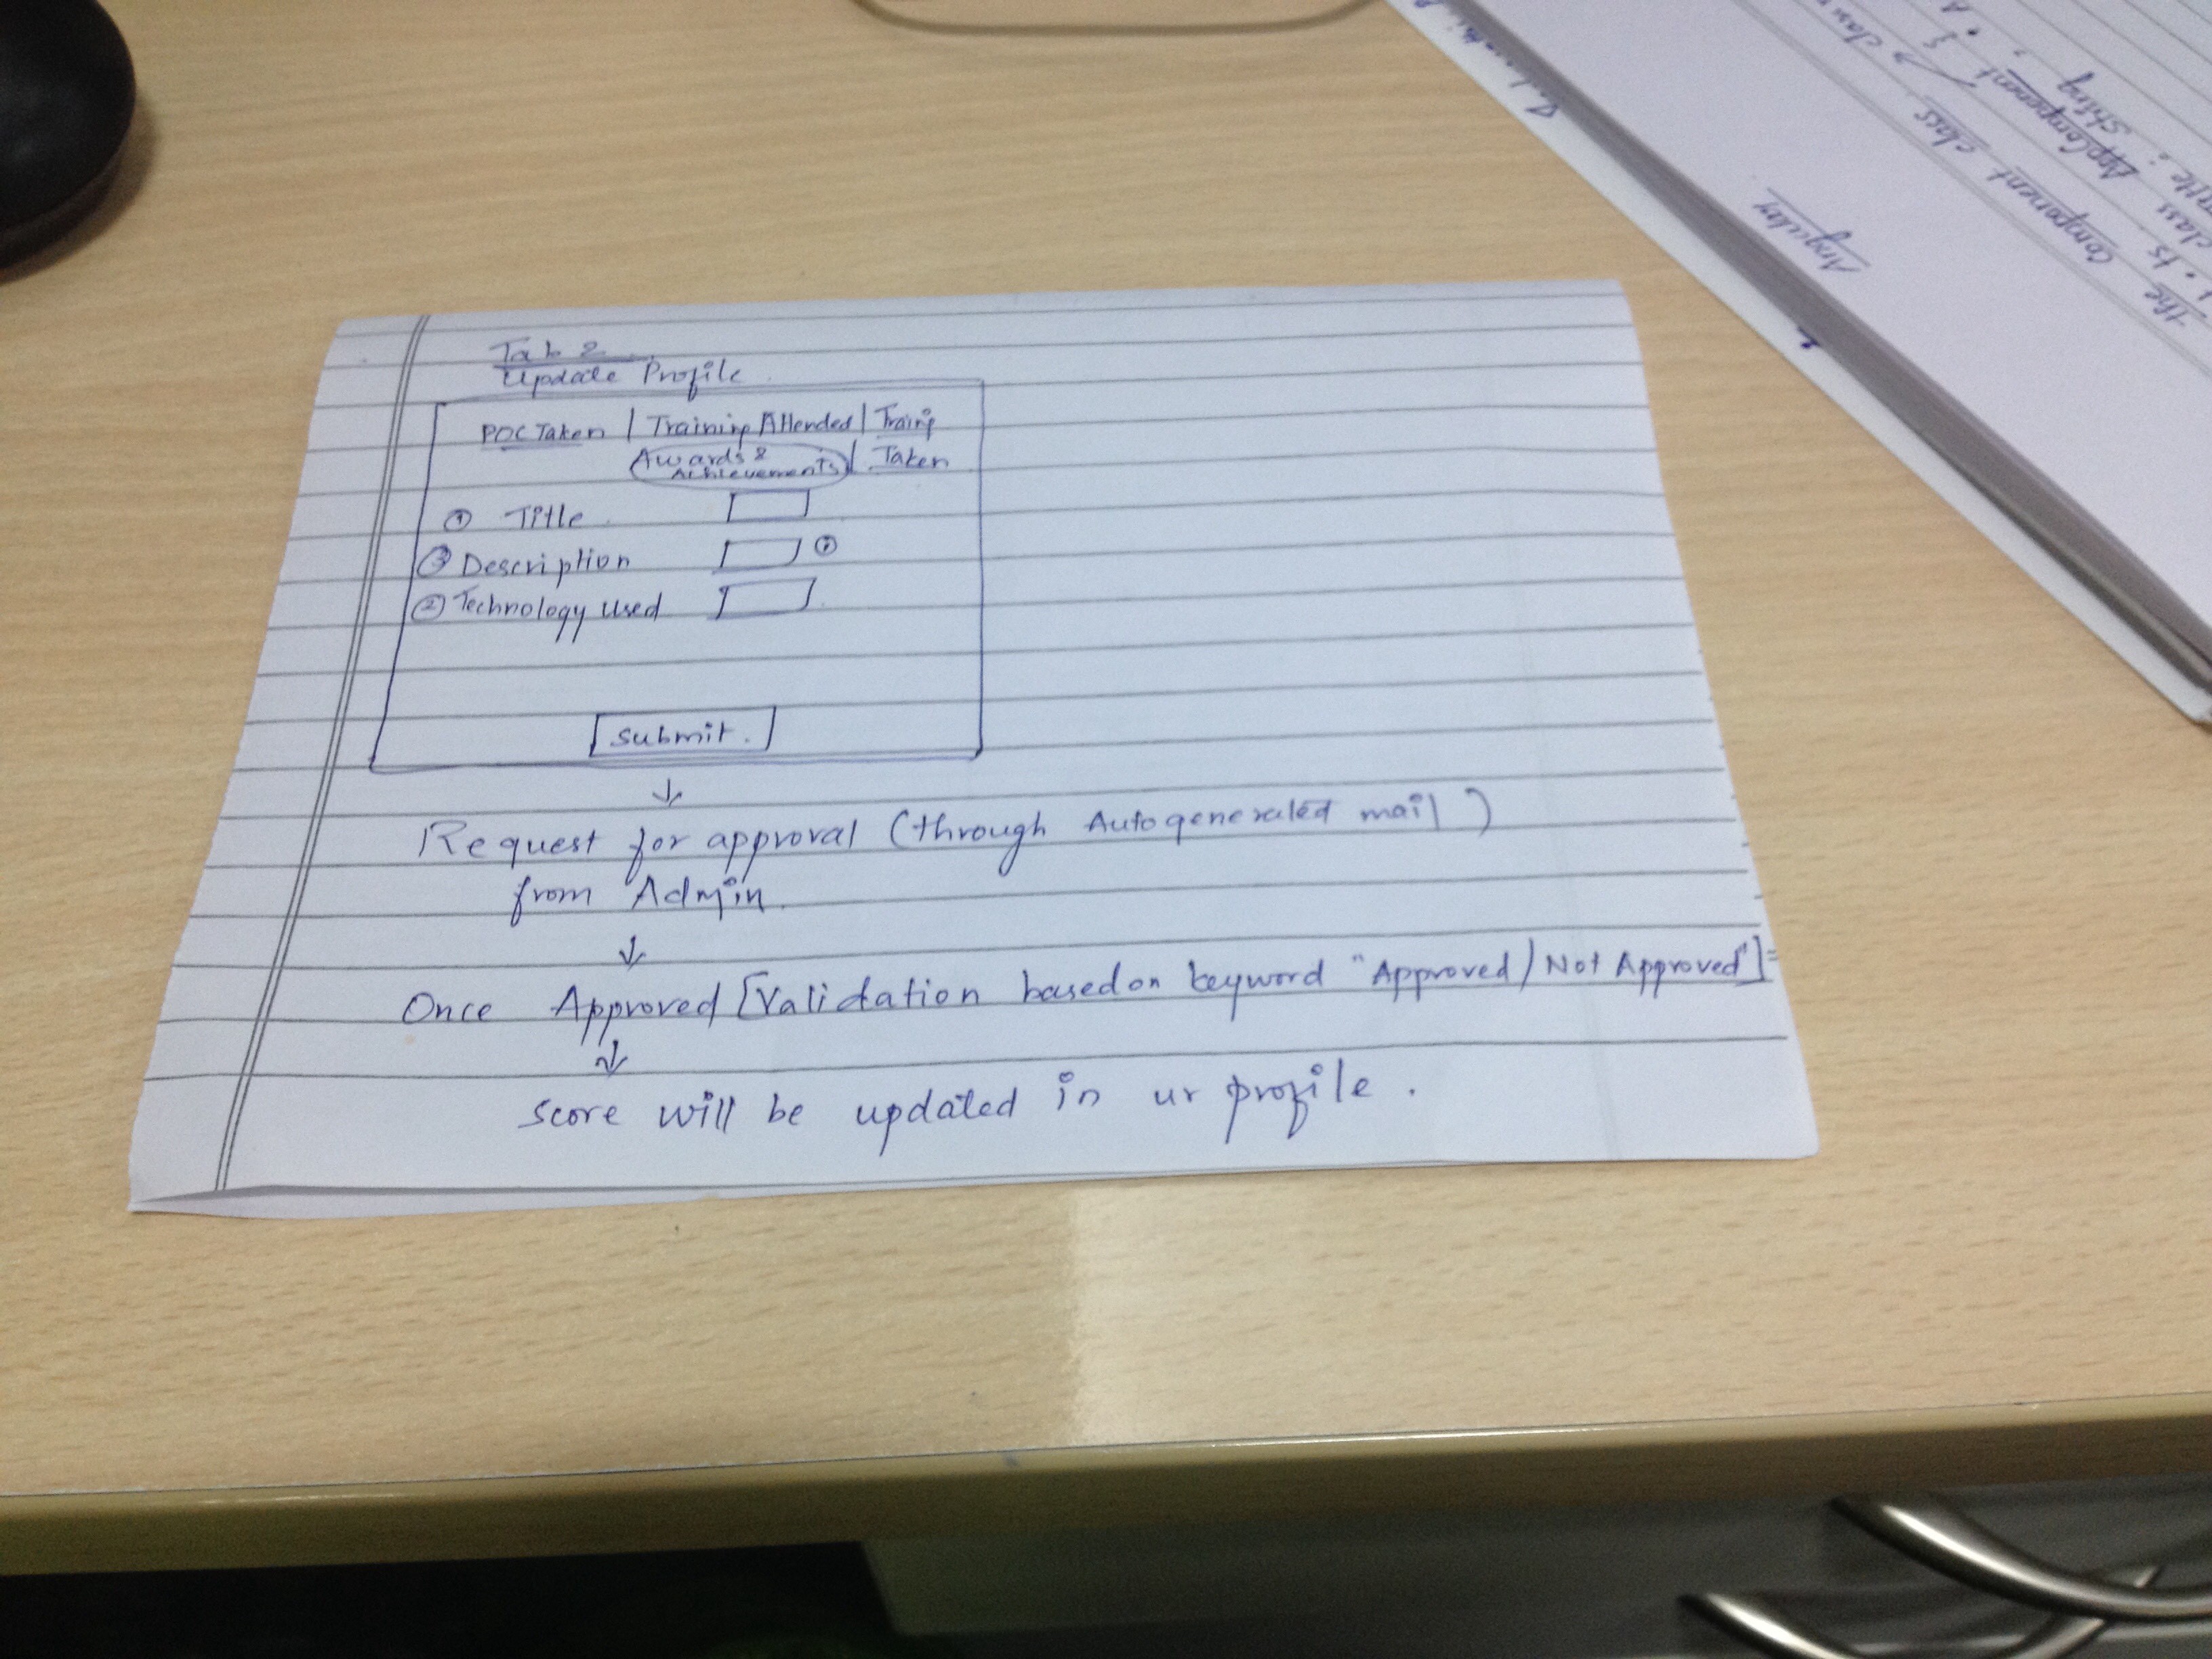 Tab 2
Update Profile
POC Taken | Training Attended | Traing
Awards & | Taken
Achievements
① Title
③ Description ⓘ
② Technology Used
Submit.
↓
Request for approval (through Autogenerated mail)
from Admin.
↓
Once Approved [Validation based on keyword "Approved/Not Approved"]
↓
score will be updated in ur profile.
Angular
component class
AppComponent
class
String
the